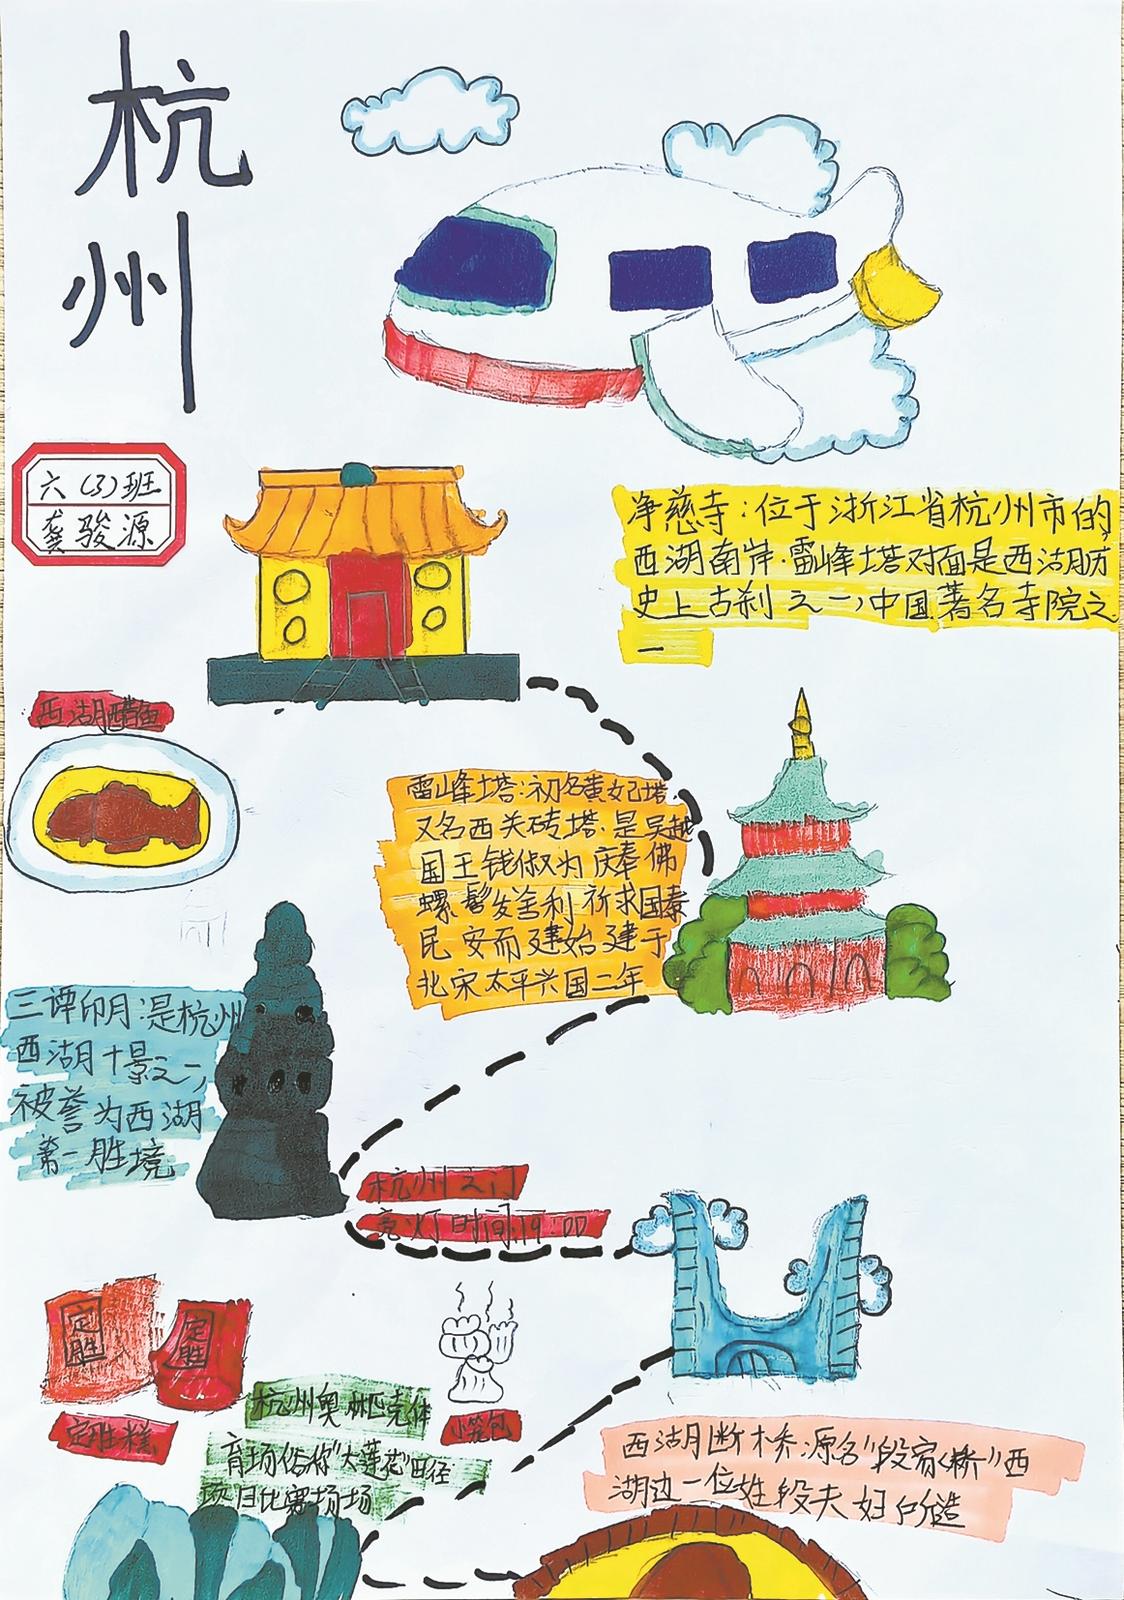 杭
州
六(3)班
龚骏源
净慈寺:位于浙江省杭州市的
西湖南岸.雷峰塔对面是西湖历
史上古刹之一,中国著名寺院之
一
西湖醋鱼
雷峰塔:初名黄妃塔,
又名西关砖塔.是吴越
国王钱俶为庆奉佛
螺髻发舍利祈求国泰
民安而建始建于
北宋太平兴国二年
三谭印月:是杭州
西湖十景之一,
被誉为西湖
第一胜境
杭州之门
亮灯时间:19:00
定胜
定胜
定胜糕
小笼包
杭州奥林匹克体
育场俗称"大莲花"田径
项目比赛场场
西湖断桥.源名"段家桥"西
湖边一位姓段夫妇所造